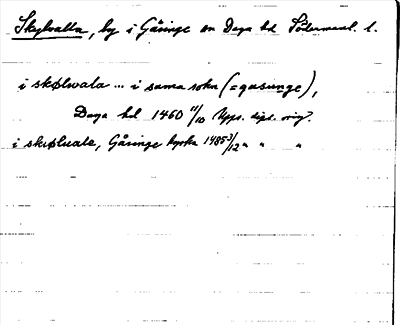 Skylvalla, by i Gåsinge sn Daga hd Södermanl. l.
i skølwala ... i sama sokn (= gasunge),
Daga hd 1460 11/10 Upps. dipl. orig.
i skiøluala, Gåsinge kyrka 1485 3/12 " " "